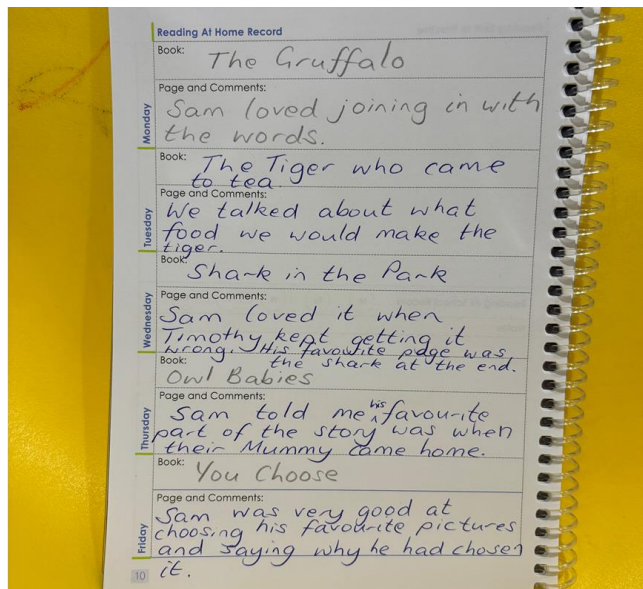 Reading At Home Record
Book: The Gruffalo
Page and Comments:
Sam loved joining in with
the words.
Monday
Book: The Tiger who came
to tea.
Page and Comments:
We talked about what
food we would make the
tiger.
Tuesday
Book: Shark in the Park
Page and Comments:
Sam loved it when
Timothy kept getting it
wrong. His favourite page was
the shark at the end.
Wednesday
Book: Owl Babies
Page and Comments:
Sam told me his favourite
part of the story was when
their Mummy came home.
Thursday
Book: You Choose
Page and Comments:
Sam was very good at
choosing his favourite pictures
and saying why he had chosen
it.
Friday
10